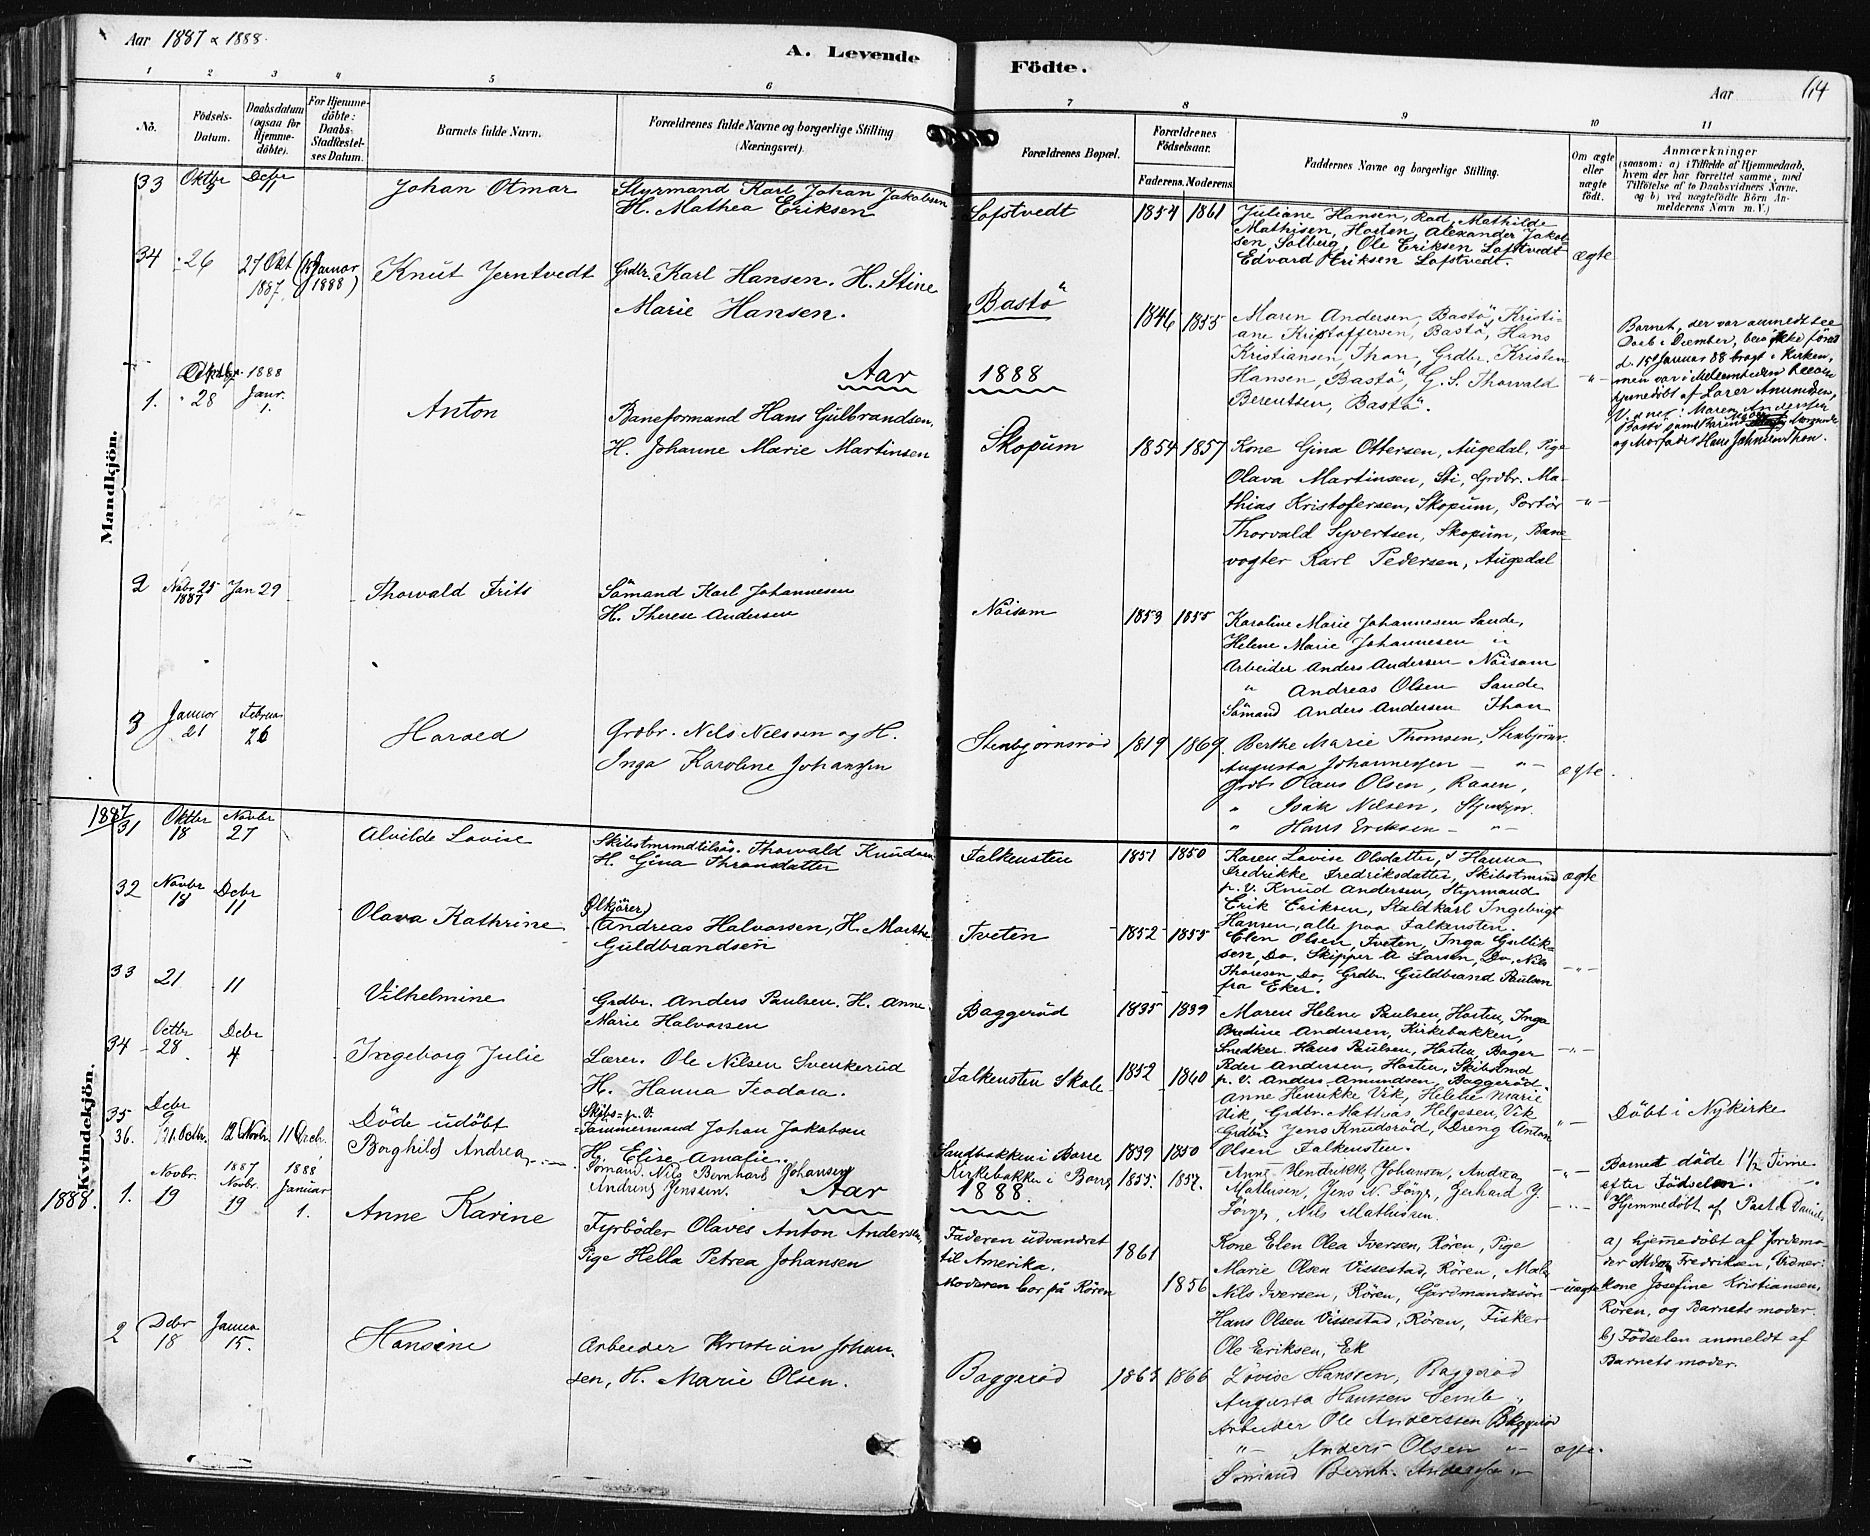 Aar 1887 & 1888.
A. Levende Födte.
Aar 114
1 2 3 4 5 6 7 8 9 10 11
No.
Födsels-Datum.
Daabsdatum (ogsaa for Hjemme-döbte).
For Hjemme-döbte: Daabs-Stadfæstel-ses Datum.
Barnets fulde Navn.
Forældrenes fulde Navne og borgerlige Stilling (Næringsvei).
Forældrenes Bopæl.
Forældrenes Födselsaar.
Faderens. Moderens.
Faddernes Navne og borgerlige Stilling.
Om ægte eller uægte födt.
Anmærkninger
(saasom: a) i Tilfælde af Hjemmedaab, hvem der har forrettet samme, med Tilföielse af to Daabsvidners Navne, og b) ved uægtefödte Börn An-melderens Navn m. V.)
Mandkjön.
33 Oktbr Debr Johan Otmar
Styrmand Karl Johan Jakobsen
H. Mathea Eriksen
Lofstvedt 1854 1861
Juliane Hansen, Rød, Mathilde
Mathisen, Hosten, Alexander Jakob
sen, Solberg, Ole Eriksen Lofstvedt
Edvard Eriksen Lofstvedt. ægte
34 " 26 27 Okt 1887 (15 Januar 1888) Knut Jerntvedt
Grdbr. Karl Hansen. H. Stine
Marie Hansen.
Bastö 1846 1855
Maren Andersen, Bastö, Kristi-
ane Kristoffersen, Bastö, Hans
Kristiansen, Thon, Grdbr. Kristen
Hansen, Bastö, G. S. Thorvald
Berentsen, Bastö. - " -
Barnet, der var anmeldt
Daab i December, blev ikke förend
d. 15 Januar 88 bragt i Kirken,
men var i Mellemtiden
hjemmedöbt af Lærer Amundsen,
Vidner: Maren Andersen
Bastö samt
og Morfader Hans Johannesen Thon.
Aar 1888
1. " 28 1888 Janr. 1. Anton
Baneformand Hans Gulbrandsen,
H. Johanne Marie Martinsen
Skopum 1854 1857
Kone Gina Ottersen, Augedal, Pige
Olava Martinsen, Sti, Grdbr. Ma-
thias Kristofersen, Skopum, Portör
Thorvald Syvertsen, Skopum, Bane
vogter Karl Pedersen, Augedal - " -
2 Nobr 25 1887 Jan 29 Thorvald Frits
Sömand Karl Johannesen
H. Therese Andersen
Nöisom 1853 1855
Karoline Marie Johannesen Sande,
Helene Marie Johannesen "
Arbeider Anders Andersen Nöisom
" Andreas Olsen Sande
Sömand Anders Andersen Thon
3 Januar 21 Februar 26 Harald
Grdbr. Nils Nilssen og H.
Inga Karoline Johanssen
Stenbjörnsröd 1819 1869.
Berthe Marie Thomsen, Stenbjörnr.
Augusta Johannessen - " -
Grdb. Olaus Olsen, Raaen,
" Isak Nilsen, Stenbjör.
" Hans Eriksen - " -
ægte.
Kvindekjön.
1887
31 Oktbr 18 Novbr 27 Alvilde Lovise
Skibstmrmdtilsös. Thorvald Knudsen
H. Gina Thronsdatter
Falkensten 1851 1850
Karen Lovise Olsdatter, Hanna
Fredrikke Fredriksdatter, Skibstmrmd
p. V. Knud Andersen, Styrmand
Erik Eriksen, Staldkarl Ingebrigt
Hansen, alle paa Falkensten. ægte
32 Novbr 18 Debr 11 Olava Kathrine
(Ølkjörer)
Andreas Halvorsen, H. Marthe
Guldbrandsen
Tveten 1852 1855
Elen Olsen, Tveten, Inga Gullik-
sen, Do. Skipper A Larsen, Do, Nils
Thoresen, Do, Grdbr. Guldbrand Paulsen
fra Eker. - " -
33 21 11 Vilhelmine
Grdbr. Anders Paulsen, H. Anne
Marie Halvorsen
Baggeröd 1835 1839
Maren Helene Paulsen, Hosten, Inga
Bredine Andersen, Kirkebakken,
Snedker. Hans Paulsen, Hosten, Bager
Peder Andersen, Hosten, Skibstmd
p. V. Anders Amundsen, Baggeröd. - " -
34 Octbr 28 Debr 4 Ingeborg Julie
Lærer. Ole Nilsen Svenkerud
H. Hanna Teodora.
Falkensten Skole 1852 1860
Anne Henrikke Vik, Helene Marie
Vik, Grdbr. Mathias Helgesen, Vik
Grdbr. Jens Knudsröd, Dreng Anton
Olsen Falkensten. - " -
Döbt i Nykirke
35 Debr 9 Döde udöbt
Skibs- p. V.
Tömmermand Johan Jakobsen
H. Elise Amalie.
Sandbakken i Borre 1839 1850
Barnet döde 1 1/2 Time
efter Födselen.
36. 21 Octbr. 12 Novbr. 11 Decbr. Borghild Andrea
Sömand Nils Bernhard Johansen
Andrine Jensen.
Kirkebakken i Borre 1855. 1857.
Anne Hendrikke Johansen, Andrea
Mathisen, Jens N. Sörge, Gerhard J.
Sörge, Nils Mathisen. - " -
Hjemmedöbt af Pastor Daniels
1888. Aar 1888.
1. Novbr. 19 1887 Novbr. 19 1888 Januar 1. Anne Karine
Fyrböder Olaves Anton Andersen,
Pige Hella Petrea Johansen
Faderen udvandret
til Amerika.
Moderen bor på Rören
1861 1856
Kone Elen Olea Iversen, Rören, Pige
Marie Olsen Vissestad, Rören, Maler
Nils Iversen, Rören, Gårdmandssön
Hans Olsen Vissestad, Rören, Fisker
Ole Eriksen, Ek
uægte
a) hjemmedöbt af Jordemo-
der Mdm Fredriksen, Vidner:
Kone Josefine Kristiansen,
Rören, og Barnets moder.
b) Födselen anmeldt af
Barnets moder.
2 Debr 18 Januar 15. Hansine
Arbeider Kristian Johan-
sen, H. Marie Olsen.
Baggeröd 1863 1866
Lovise Hanssen, Baggeröd
Augusta Hanssen Semb.
Arbeider Ole Anderssen Baggeröd
" - Anders Olsen " -
Sömand Bernh. Anderssen "
ægte.